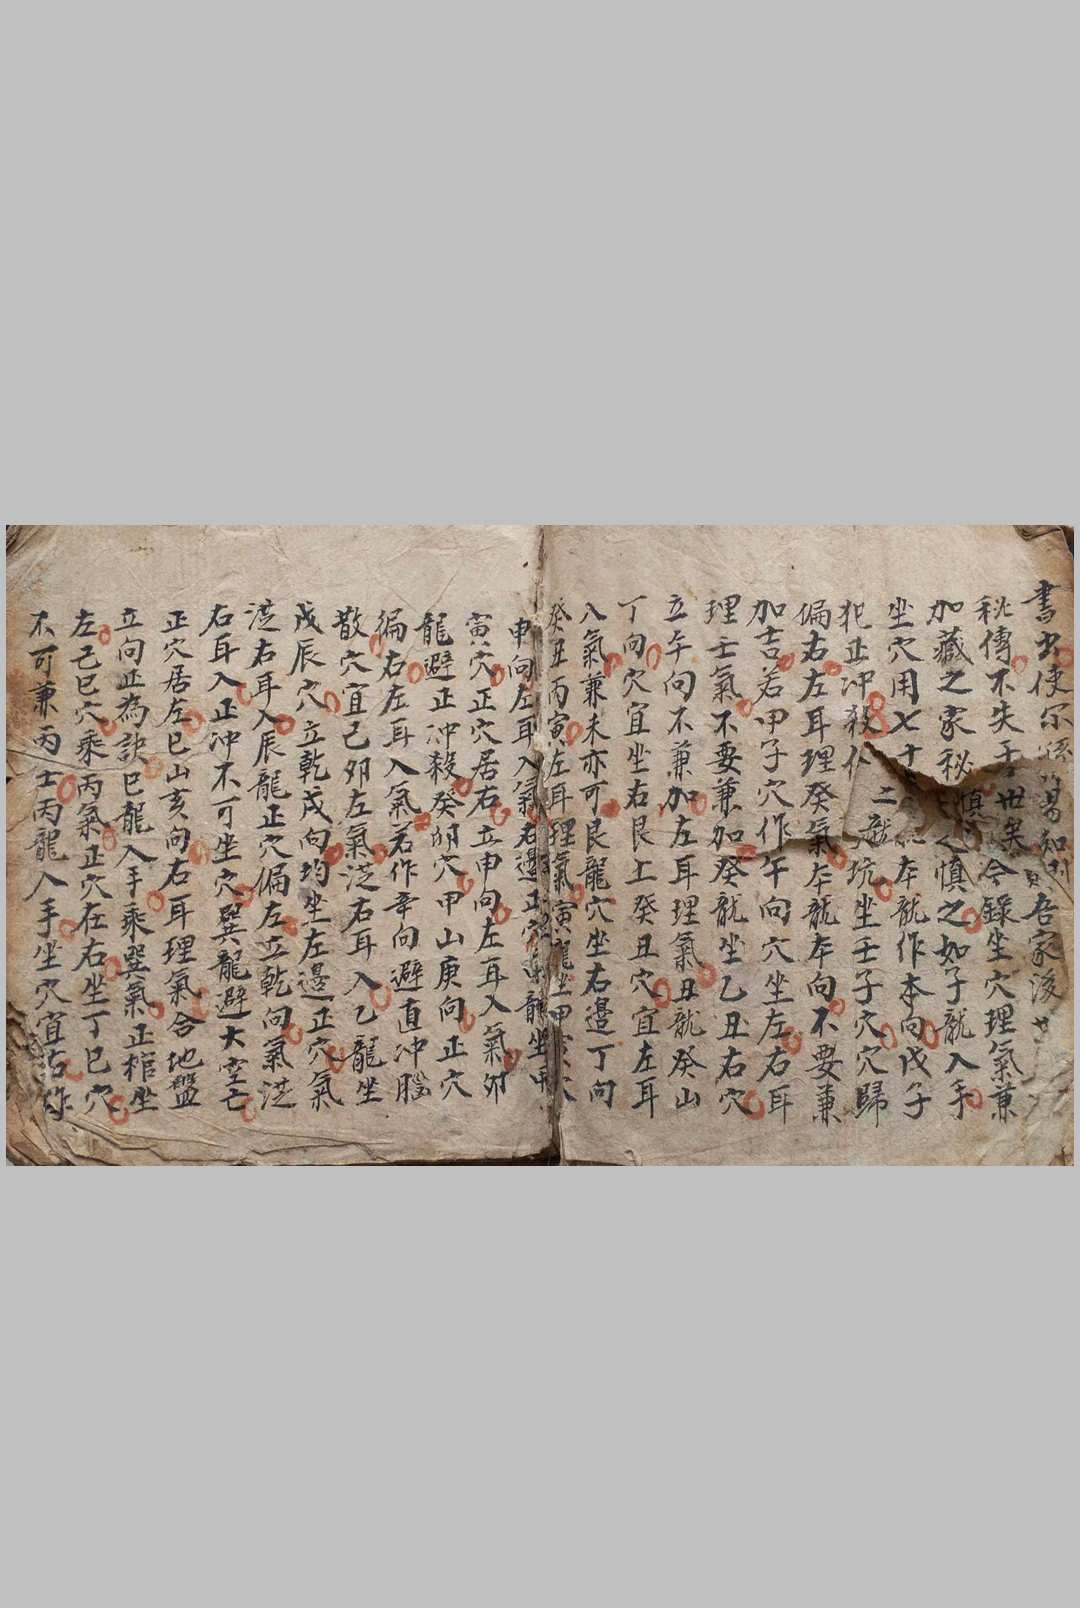 書出使尔知吾家後
秘傳不失于世矣今錄坐穴理氣兼
加藏之家秘慎之慎之如子龍入手
坐穴用七十二龍本龍作本向戊子
犯正冲殺坑坐壬子穴穴歸
偏右左耳理癸氣本龍本向不要兼
加吉若甲子穴作午向穴坐左右耳
理壬氣不要兼加癸龍坐乙丑右穴
立午向不兼加左耳理氣丑龍癸山
丁向穴宜坐右艮上癸丑穴宜左耳
入氣兼未亦可艮龍穴坐右邉丁向
癸丑丙寅左耳理氣寅龍坐甲寅穴
申向左耳入氣右邉正穴龍坐甲
寅穴正穴居右立申向左耳入氣夘
龍避正冲殺癸夘穴甲山庚向正穴
偏右左耳入氣若作辛向避直冲腦
散穴宜己夘左氣从右耳入乙龍坐
戊辰穴立乾戌向均坐左邉正穴氣
从右耳入辰龍正穴偏左立乾向氣从
右耳入正冲不可坐穴巽龍避大空亡
正穴居左巳山亥向右耳理氣合地盤
立向正為訣巳龍入手乘巽氣正棺坐
左己巳穴乘丙氣正穴在右坐丁巳穴
不可兼丙士丙龍入手坐穴宜右你